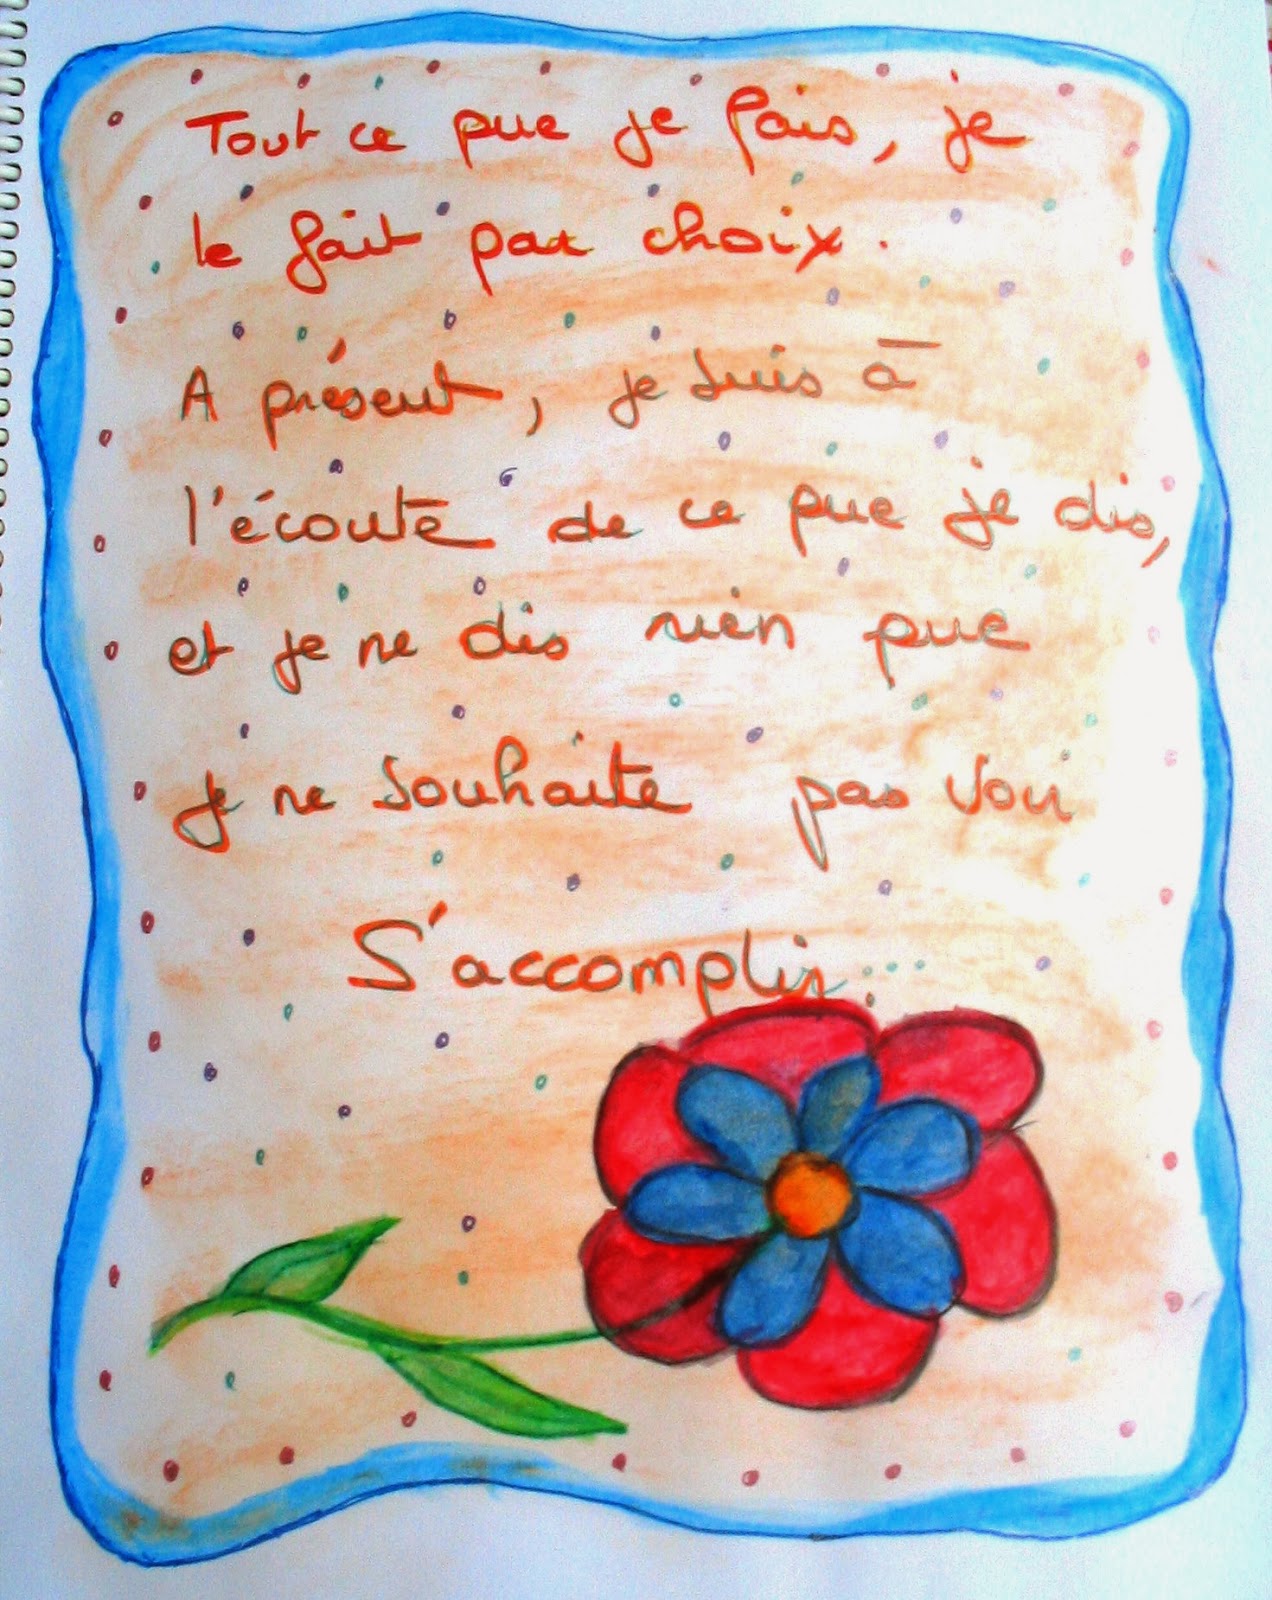 Tout ce que je fais, je
le fait par choix.
A présent, je suis à
l'écoute de ce que je dis,
et je ne dis rien que
je ne souhaite pas voir
S'accomplir...